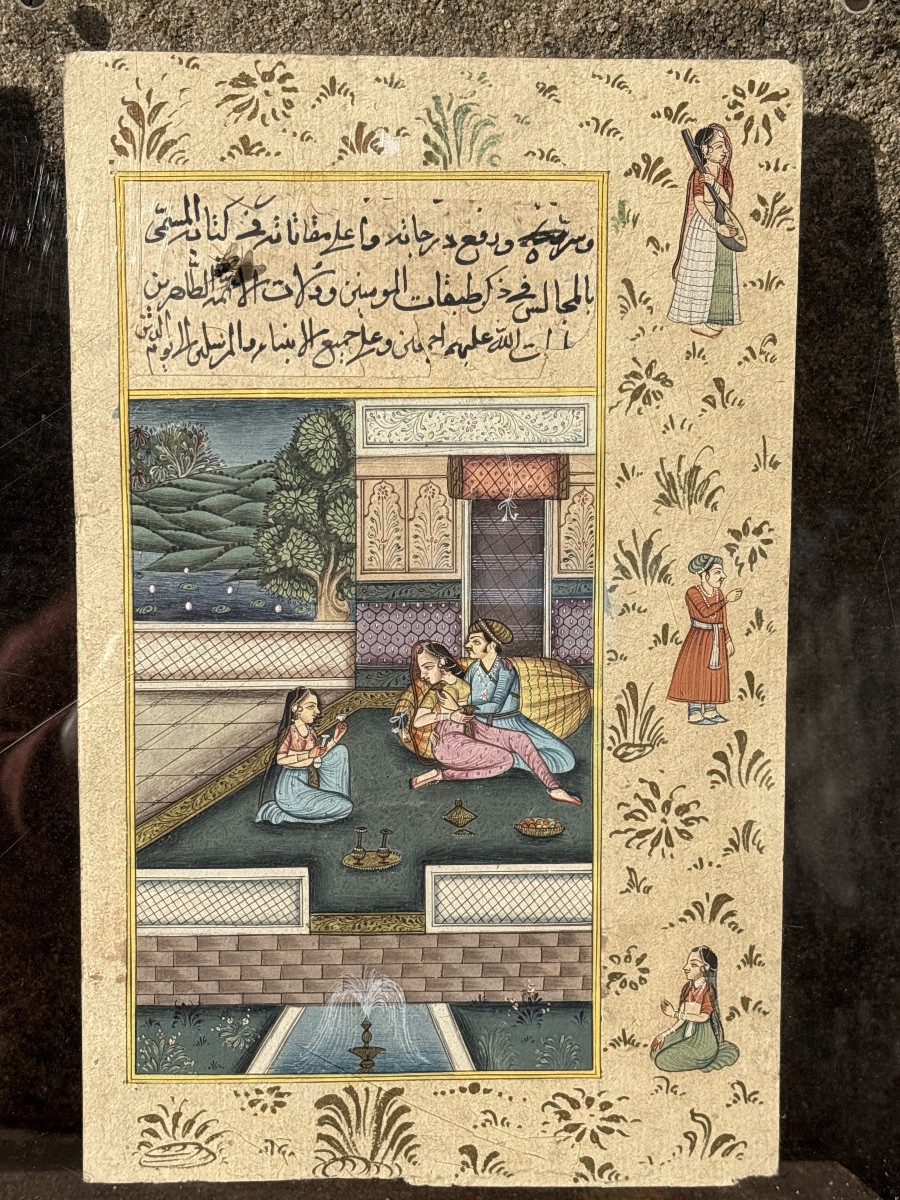 ورفع درجاته واعلا مقاماته في كتابه المسمى
بالمجالس في ذكر طبقات المومنين ودلالات الائمة الطاهرين
الله عليهم اجمعين وعلا جميع الانبياء والمرسلين الا يوم الدين